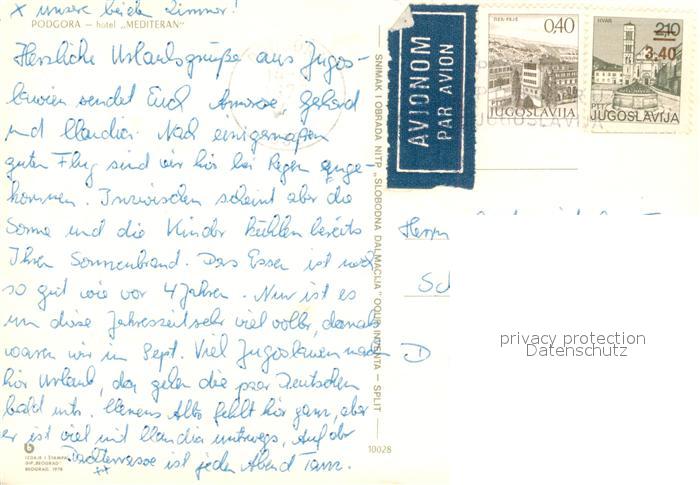 x unsere beide Zimmer!
PODGORA – hotel „MEDITERAN"
Herzliche Urlaubsgrüße aus Jugos-
lawien sendet Euch Gerhard
und Claudia. Nach einigermaßen
guten Flug sind wir hier bei Regen ange-
kommen. Inzwischen scheint aber die
Sonne und die Kinder kühlen bereits
Ihren Sonnenbrand. Das Essen ist noch
so gut wie vor 4 Jahren. Nur ist es
um diese Jahreszeit sehr viel voller, damals
waren wir in Sept. Viel Jugoslawen machen
hier Urlaub, da gehen die paar Deutschen
bald unter. Alto fehlt hier ganz, aber
er ist viel mit Claudia unterwegs. Auf der
Dachterrasse ist jeden Abend Tanz.
xx
IZDAJE I ŠTAMPA
GIP „BEOGRAD"
BEOGRAD, 1978
10028
SNIMAK I OBRADA NITP „SLOBODNA DALMACIJA" OOUR – SPLIT
AVIONOM
PAR AVION
0,40
JUGOSLAVIJA
HVAR
2,10
3.40
PTT
JUGOSLAVIJA
JUGOSLAVIJA
Herrn
Sc
D
privacy protection
Datenschutz